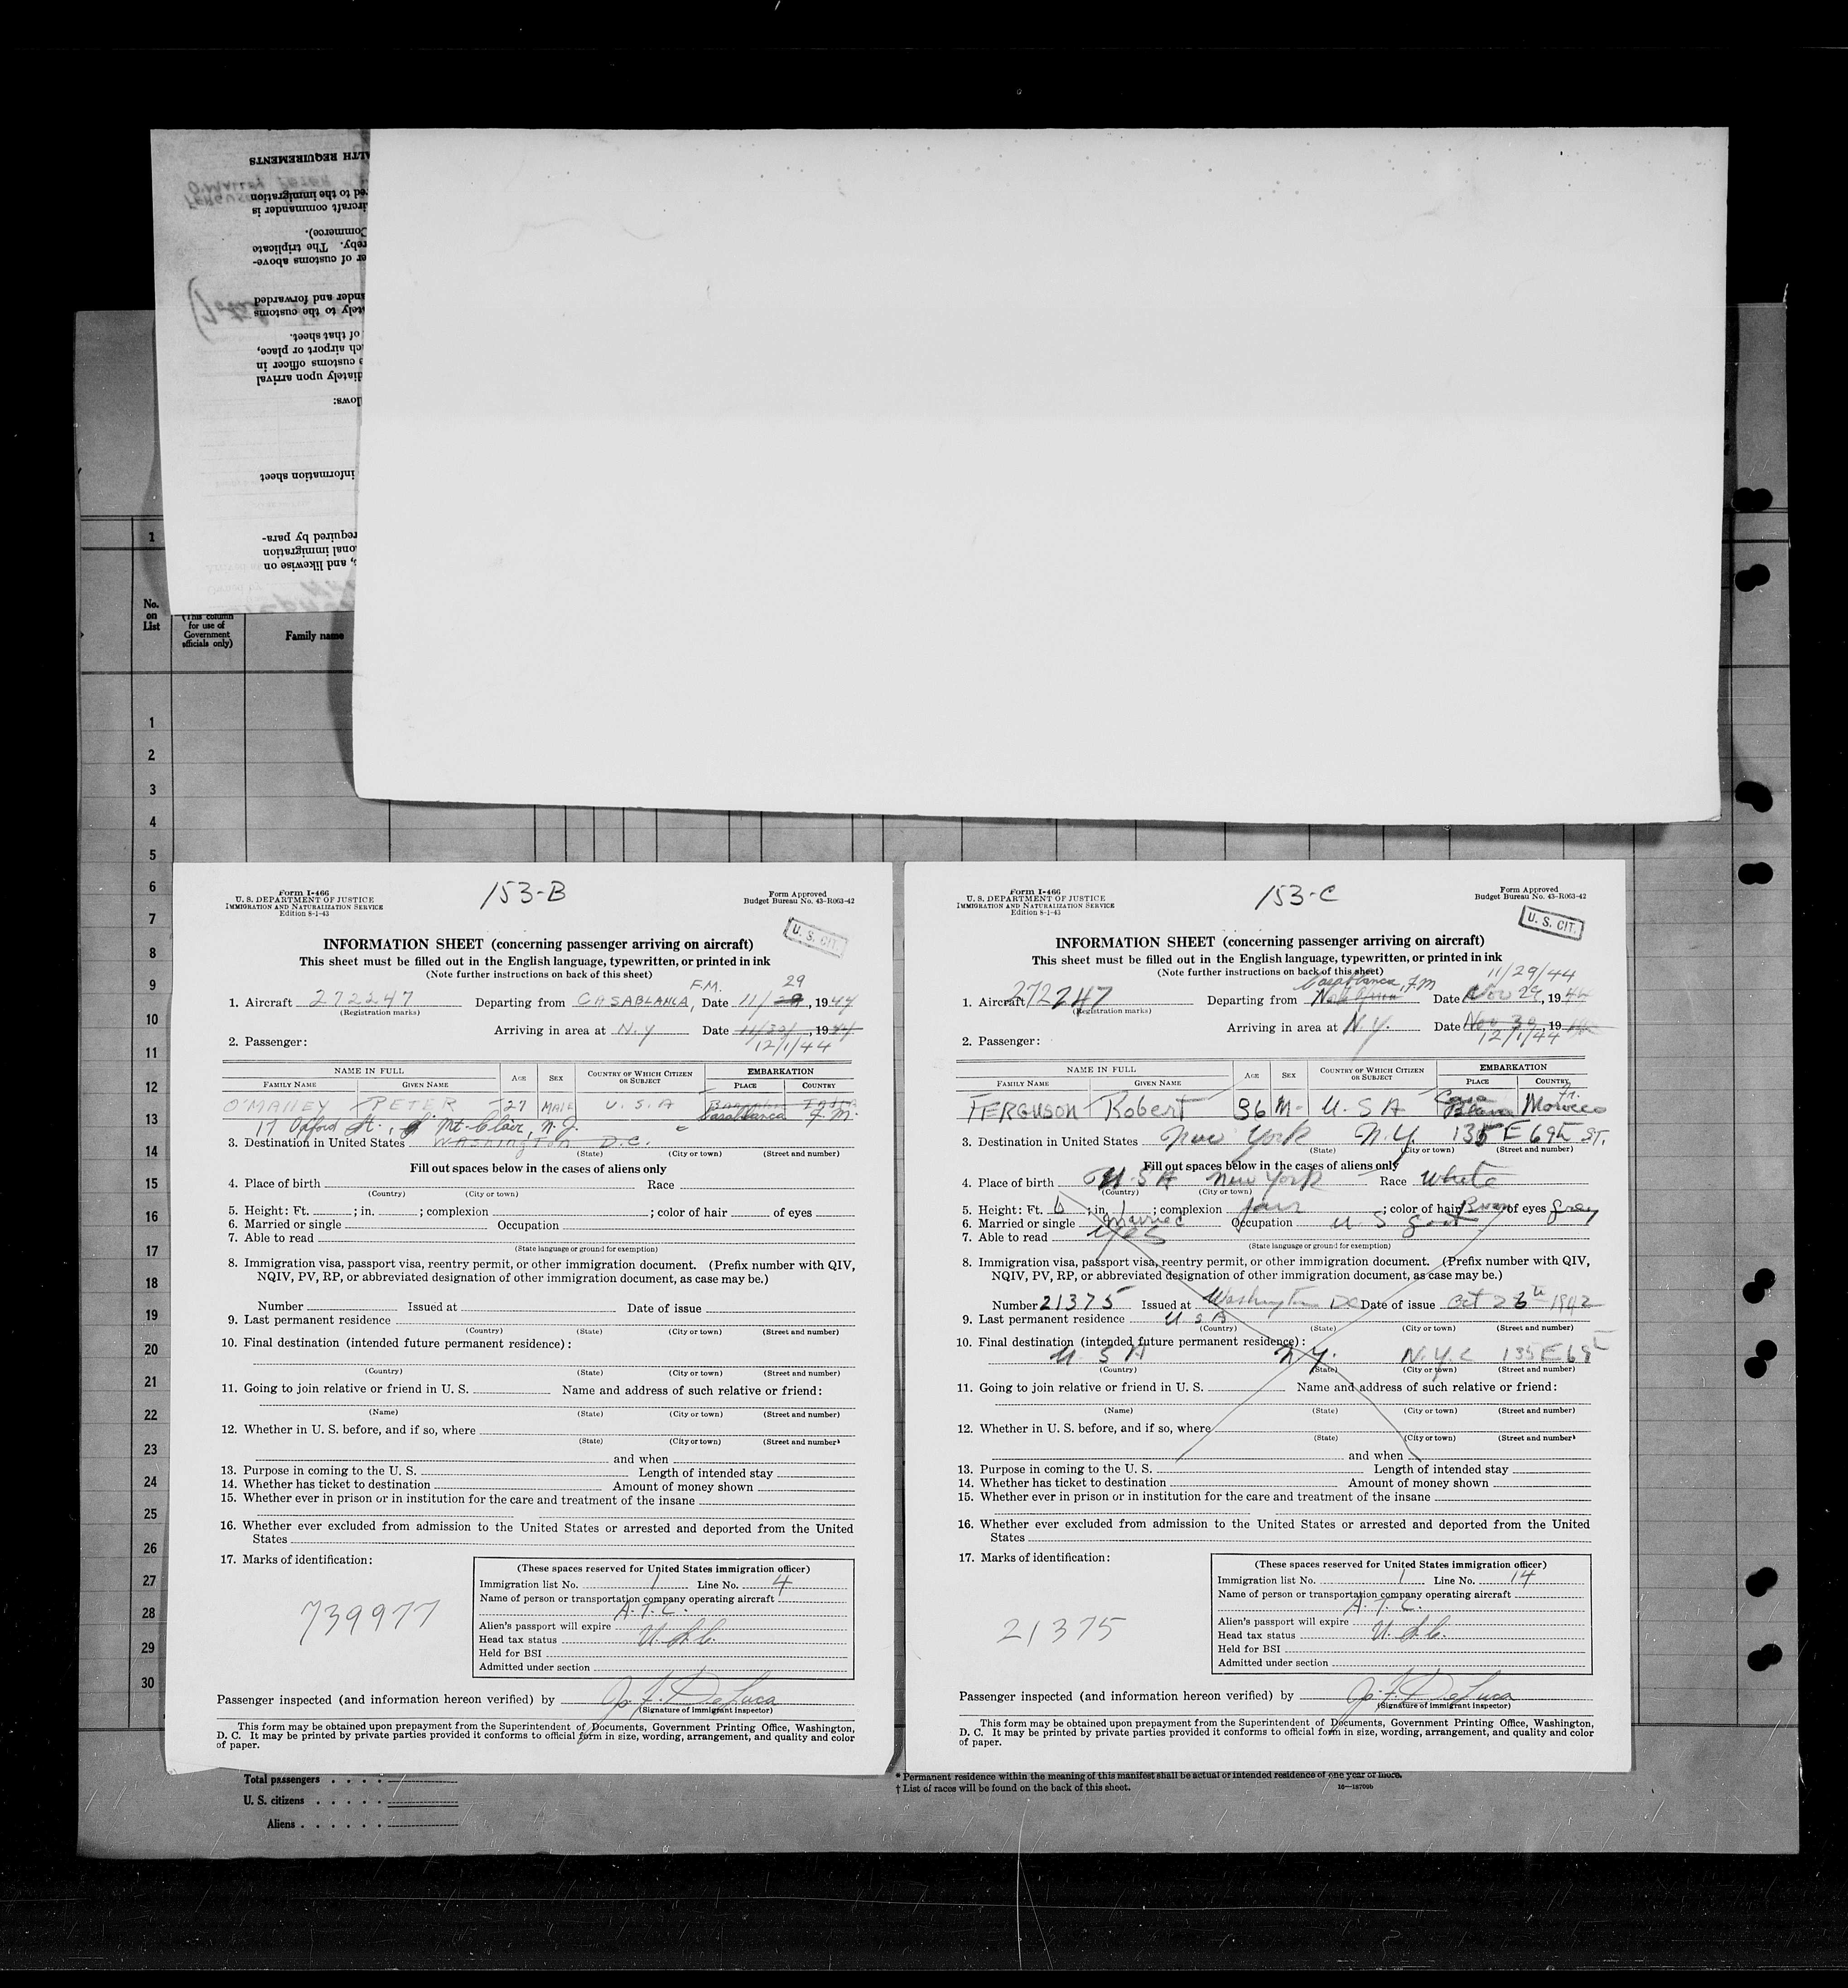 ALTH REQUIREMENTS
red to the immigration
ircraft commander is
Commerce).
reby. The triplicate
er of customs above-
nder and forwarded
tely to the customs
of that sheet.
ch airport or place,
a customs officer in
diately upon arrival
lows:
information sheet
required by para-
onal immigration
s, and likewise on
1
No.
on
List
(This column
for use of
Government
officials only)
Family name
1
2
3
4
5
6
7
8
9
10
11
12
13
14
15
16
17
18
19
20
21
22
23
24
25
26
27
28
29
30
Form I-466
U. S. DEPARTMENT OF JUSTICE
IMMIGRATION AND NATURALIZATION SERVICE
Edition 8-1-43
153-B
Form Approved
Budget Bureau No. 43-R063-42
U. S. CIT.
INFORMATION SHEET (concerning passenger arriving on aircraft)
This sheet must be filled out in the English language, typewritten, or printed in ink
(Note further instructions on back of this sheet)
F.M. 29
1. Aircraft 272247 Departing from CASABLANCA, Date 11/ , 1944
(Registration marks)
Arriving in area at N.Y Date 11/30/ , 1944
12/1/44
2. Passenger:
NAME IN FULL AGE SEX COUNTRY OF WHICH CITIZEN OR SUBJECT EMBARKATION
FAMILY NAME GIVEN NAME PLACE COUNTRY
O'MALLEY PETER 27 MALE U.S.A
Casablanca F.M.
17 Oxford St., Mt. Clair, N.J.
3. Destination in United States WASHINGTON D.C.
(State) (City or town) (Street and number)
Fill out spaces below in the cases of aliens only
4. Place of birth Race
(Country) (City or town)
5. Height: Ft. ; in. ; complexion ; color of hair of eyes
6. Married or single Occupation
7. Able to read
(State language or ground for exemption)
8. Immigration visa, passport visa, reentry permit, or other immigration document. (Prefix number with QIV,
NQIV, PV, RP, or abbreviated designation of other immigration document, as case may be.)
Number Issued at Date of issue
9. Last permanent residence
(Country) (State) (City or town) (Street and number)
10. Final destination (intended future permanent residence):
(Country) (State) (City or town) (Street and number)
11. Going to join relative or friend in U. S. Name and address of such relative or friend:
(Name) (State) (City or town) (Street and number)
12. Whether in U. S. before, and if so, where
(State) (City or town) (Street and number)
and when
13. Purpose in coming to the U. S. Length of intended stay
14. Whether has ticket to destination Amount of money shown
15. Whether ever in prison or in institution for the care and treatment of the insane
16. Whether ever excluded from admission to the United States or arrested and deported from the United
States
17. Marks of identification:
739977
(These spaces reserved for United States immigration officer)
Immigration list No. 1 Line No. 4
Name of person or transportation company operating aircraft
A.T.C.
Alien's passport will expire
Head tax status U.S.C.
Held for BSI
Admitted under section
Passenger inspected (and information hereon verified) by Jo. F. DeLuca
(Signature of immigrant inspector)
This form may be obtained upon prepayment from the Superintendent of Documents, Government Printing Office, Washington,
D. C. It may be printed by private parties provided it conforms to official form in size, wording, arrangement, and quality and color
of paper.
Form I-466
U. S. DEPARTMENT OF JUSTICE
IMMIGRATION AND NATURALIZATION SERVICE
Edition 8-1-43
153-C
Form Approved
Budget Bureau No. 43-R063-42
U. S. CIT.
INFORMATION SHEET (concerning passenger arriving on aircraft)
This sheet must be filled out in the English language, typewritten, or printed in ink
(Note further instructions on back of this sheet)
Casablanca, F.M 11/29/44
1. Aircraft 272247 Departing from Date Nov 29, 19
(Registration marks)
Arriving in area at N.Y. Date Nov 30, 19
12/1/44
2. Passenger:
NAME IN FULL AGE SEX COUNTRY OF WHICH CITIZEN OR SUBJECT EMBARKATION
FAMILY NAME GIVEN NAME PLACE COUNTRY
FERGUSON Robert 36 M. U.S A Casa Blanca Fr. Morocco
3. Destination in United States New York N.Y. 135 E 69th ST.
(State) (City or town) (Street and number)
Fill out spaces below in the cases of aliens only
4. Place of birth U.S A New York Race White
(Country) (City or town)
5. Height: Ft. 6 ; in. 1 ; complexion fair ; color of hair Brown of eyes Grey
6. Married or single Married Occupation U.S Govt
7. Able to read yes
(State language or ground for exemption)
8. Immigration visa, passport visa, reentry permit, or other immigration document. (Prefix number with QIV,
NQIV, PV, RP, or abbreviated designation of other immigration document, as case may be.)
Number 21375 Issued at Washington DC Date of issue Oct 26th 1942
9. Last permanent residence U S A
(Country) (State) (City or town) (Street and number)
10. Final destination (intended future permanent residence):
U. S A N.Y. N.Y.C 135 E 69th
(Country) (State) (City or town) (Street and number)
11. Going to join relative or friend in U. S. Name and address of such relative or friend:
(Name) (State) (City or town) (Street and number)
12. Whether in U. S. before, and if so, where
(State) (City or town) (Street and number)
and when
13. Purpose in coming to the U. S. Length of intended stay
14. Whether has ticket to destination Amount of money shown
15. Whether ever in prison or in institution for the care and treatment of the insane
16. Whether ever excluded from admission to the United States or arrested and deported from the United
States
17. Marks of identification:
21375
(These spaces reserved for United States immigration officer)
Immigration list No. 1 Line No. 14
Name of person or transportation company operating aircraft
A.T.C.
Alien's passport will expire
Head tax status U.S.C.
Held for BSI
Admitted under section
Passenger inspected (and information hereon verified) by Jo. F. DeLuca
(Signature of immigrant inspector)
This form may be obtained upon prepayment from the Superintendent of Documents, Government Printing Office, Washington,
D. C. It may be printed by private parties provided it conforms to official form in size, wording, arrangement, and quality and color
of paper.
Total passengers . . . .
U. S. citizens . . . . .
Aliens . . . . . .
* Permanent residence within the meaning of this manifest shall be actual or intended residence of one year or more.
† List of races will be found on the back of this sheet.
16—18709b